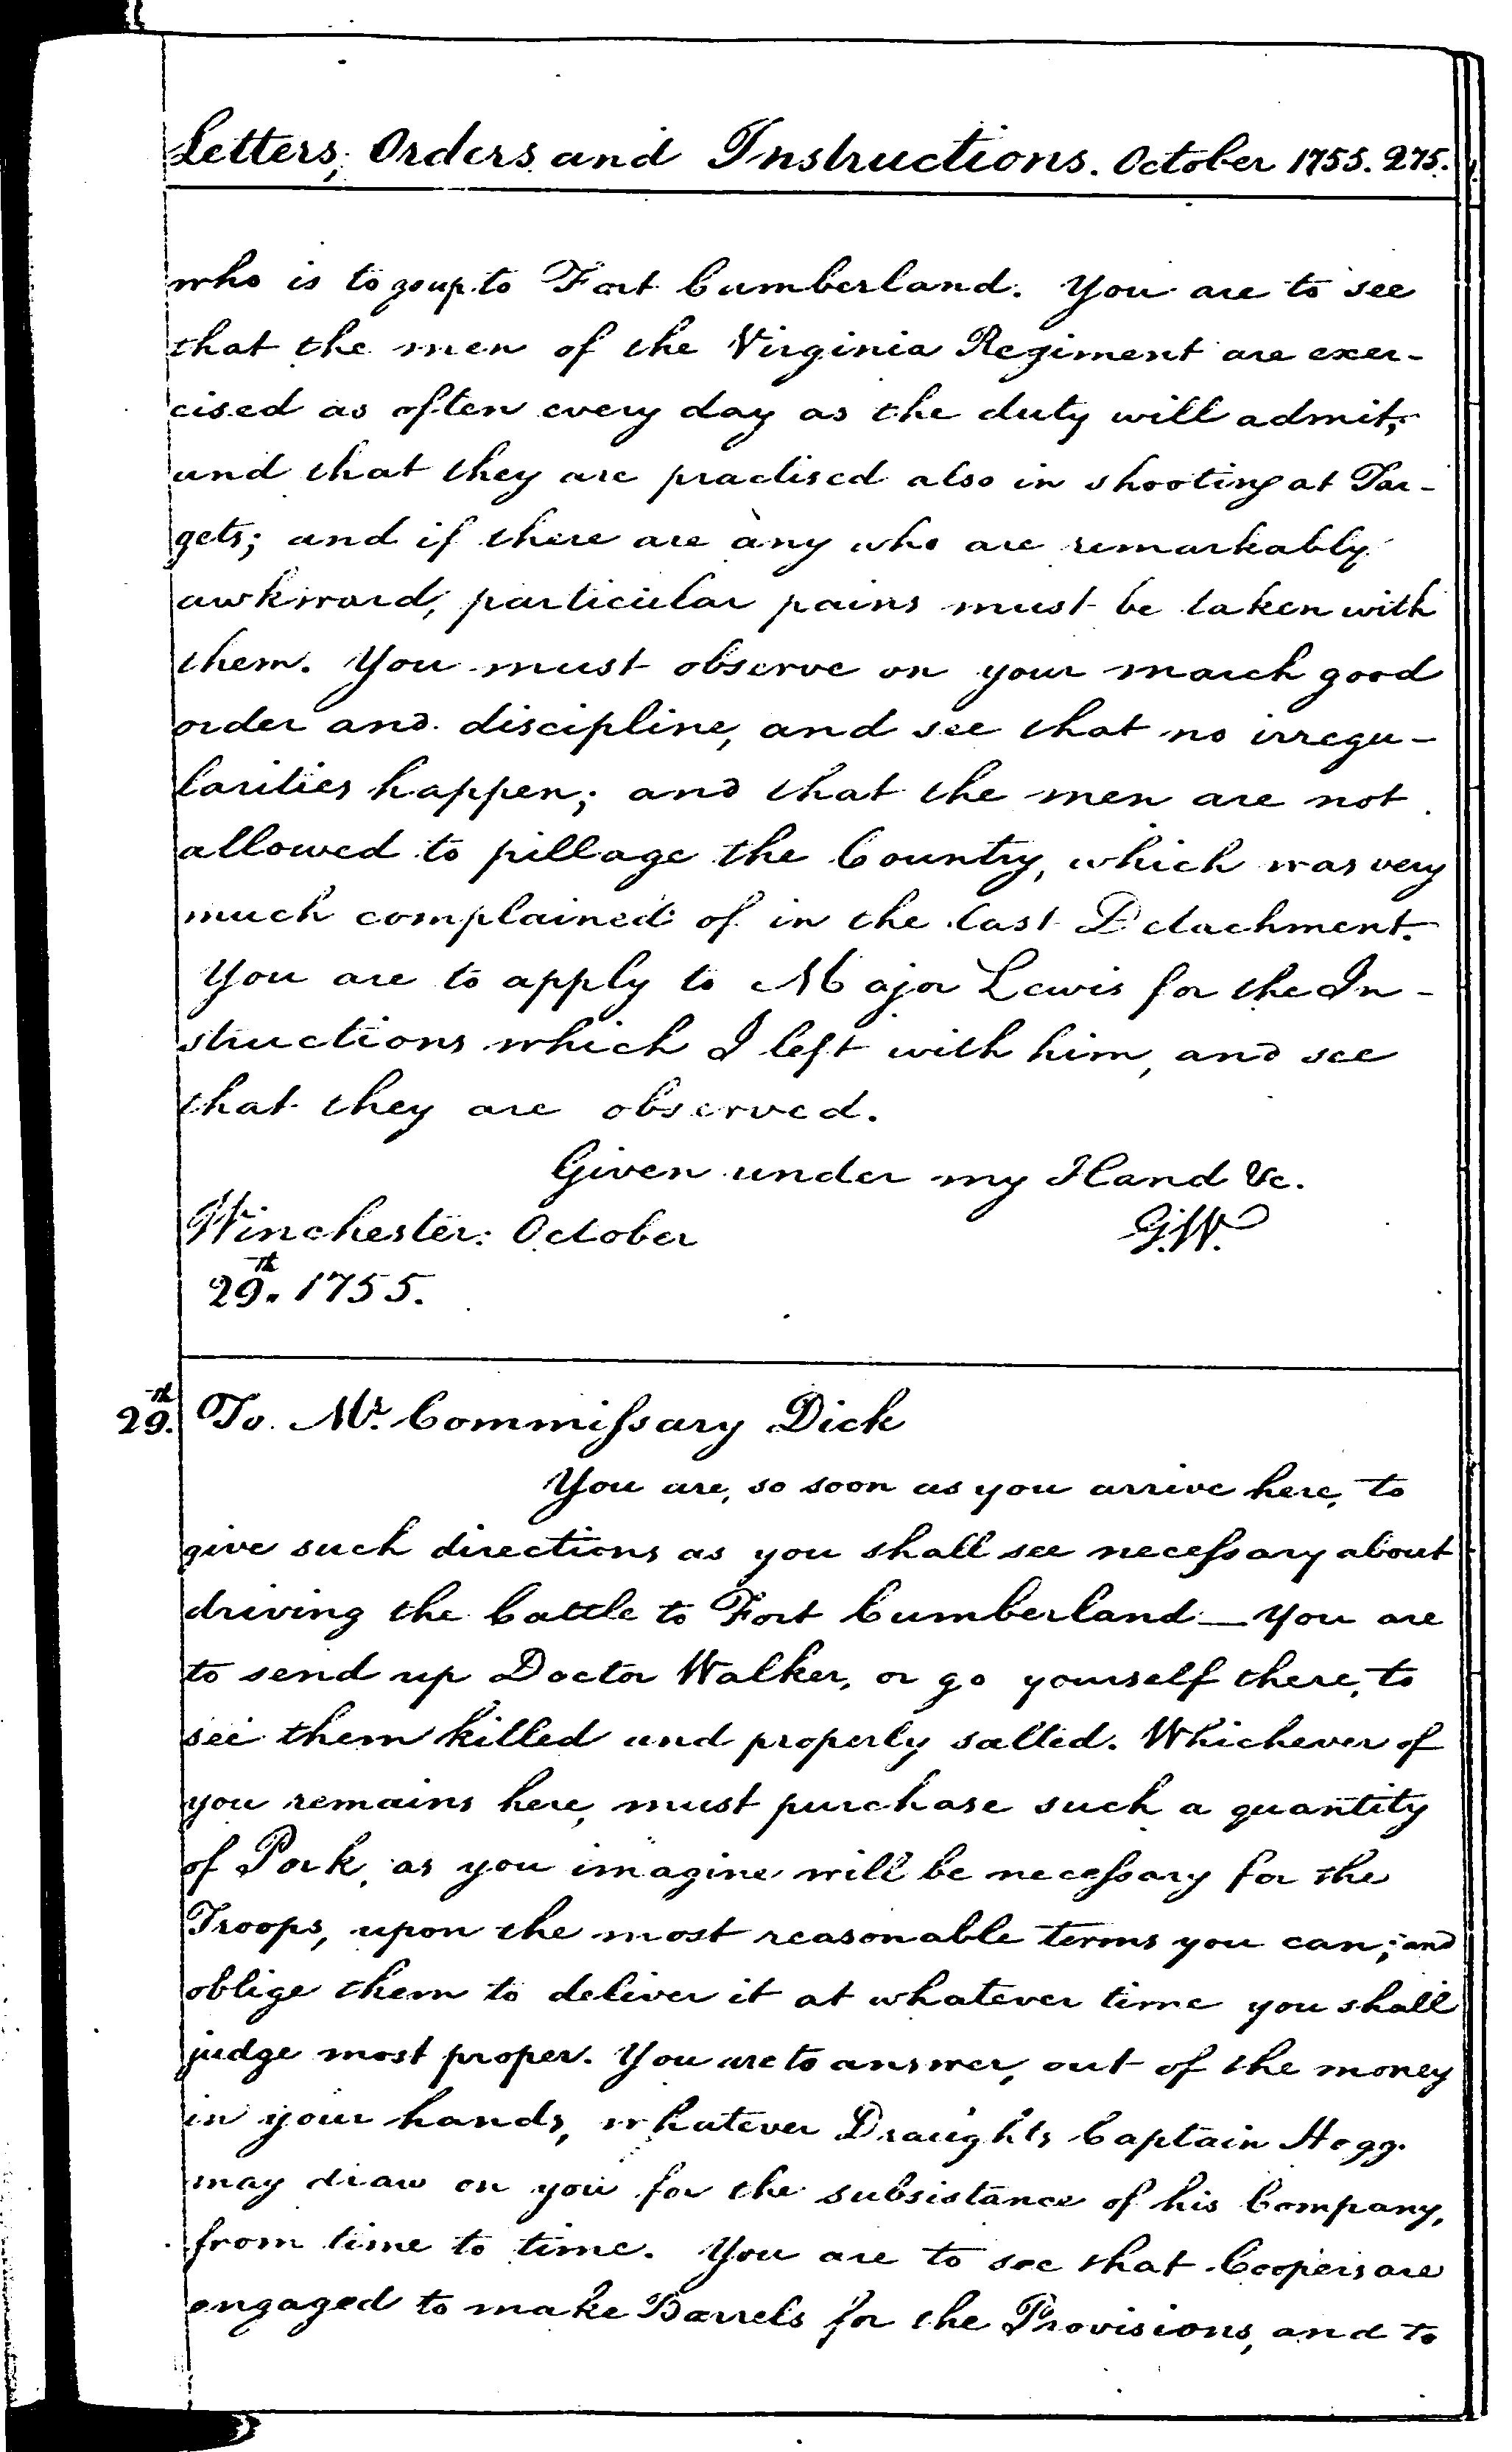 Letters, Orders and Instructions. October 1755. 275.
who is to go up to Fort Cumberland. You are to see
that the men of the Virginia Regiment are exer-
cised as often every day as the duty will admit,
and that they are practised also in shooting at Tar-
gets; and if there are any who are remarkably
awkward, particular pains must be taken with
them. You must observe on your march good
order and discipline, and see that no irregu-
larities happen; and that the men are not
allowed to pillage the Country, which was very
much complained of in the last Detachment.
You are to apply to Major Lewis for the In-
structions which I left with him, and see
that they are observed.
Given under my Hand &c.
Winchester: October G.W.
29.th 1755.
29.th To Mr. Commissary Dick
You are, so soon as you arrive here, to
give such directions as you shall see necessary about
driving the Cattle to Fort Cumberland — You are
to send up Doctor Walker, or go yourself there, to
see them killed and properly salted. Whichever of
you remains here, must purchase such a quantity
of Pork, as you imagine will be necessary for the
Troops, upon the most reasonable terms you can; and
oblige them to deliver it at whatever time you shall
judge most proper. You are to answer, out of the money
in your hands, whatever Draughts Captain Hogg
may draw on you for the subsistance of his Company,
from time to time. You are to see that Coopers are
engaged to make Barrels for the Provisions, and to